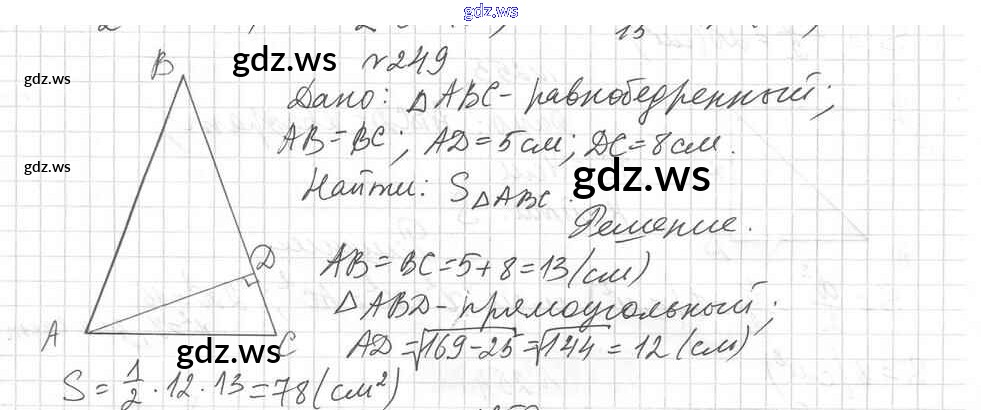 gdz.ws
№249
Дано: △ABC - равнобедренный;
AB = BC; AD = 5 см; DC = 8 см.
Найти: S△ABC.
Решение.
AB = BC = 5 + 8 = 13 (см)
△ABD - прямоугольный;
AD = √169 - 25 = √144 = 12 (см)
S = 1/2 · 12 · 13 = 78 (см²)
B
D
A
C
gdz.ws
gdz.ws
gdz.ws
gdz.ws
gdz.ws